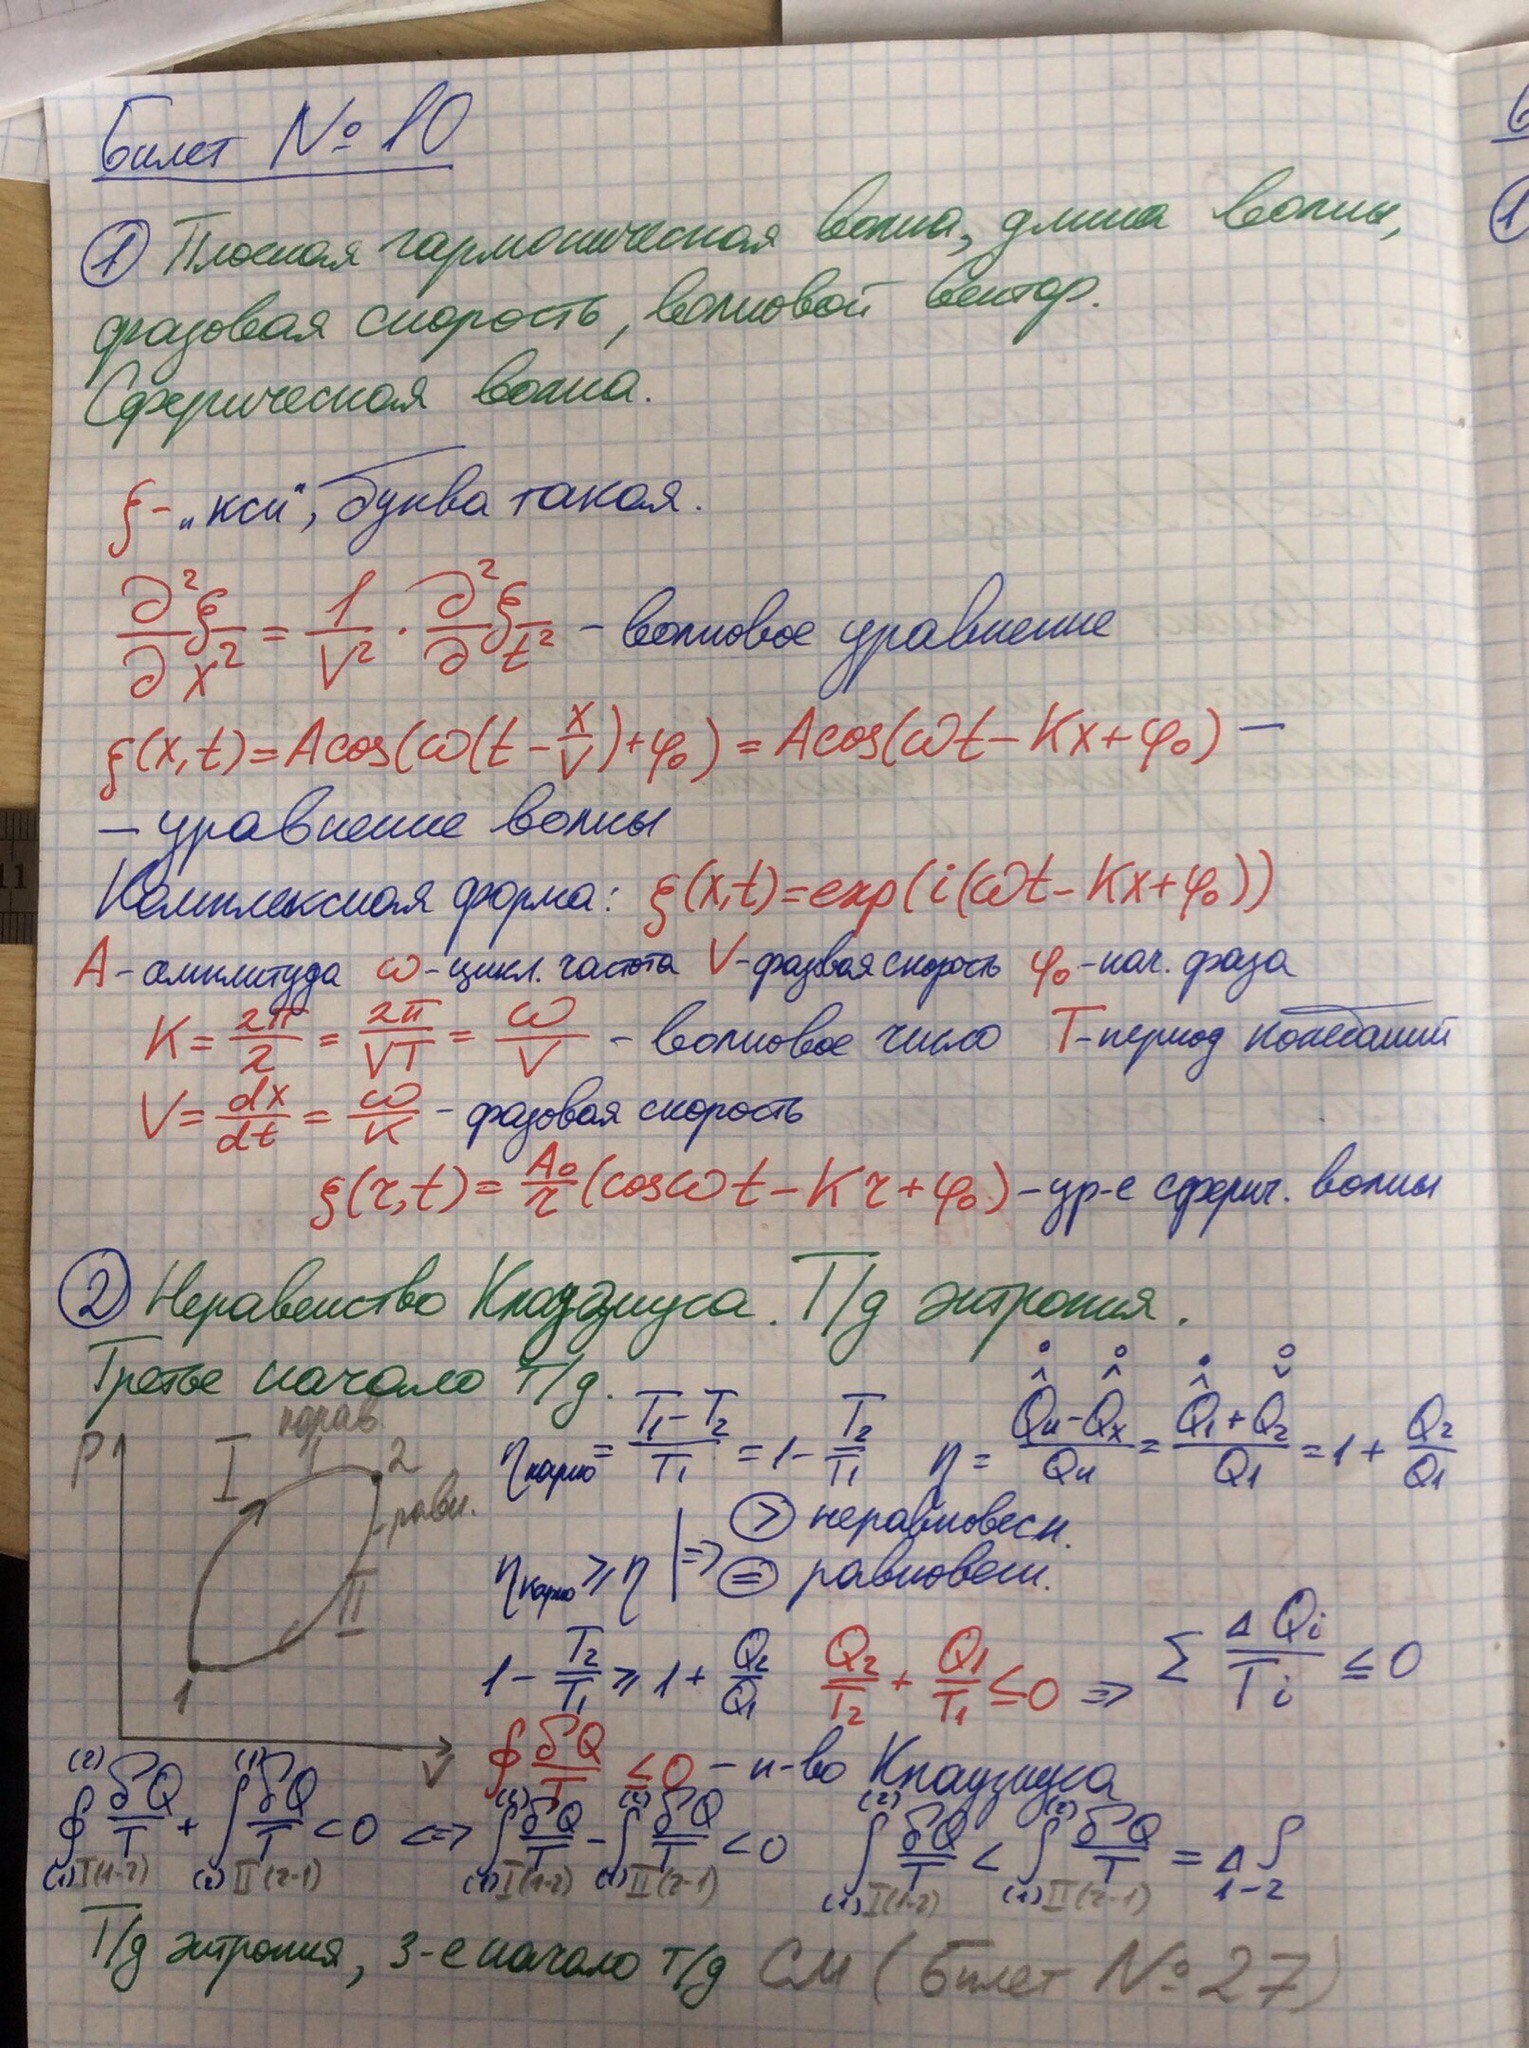 Билет № 10
① Плоская гармоническая волна, длина волны,
фазовая скорость, волновой вектор.
Сферическая волна.
ξ - „кси", буква такая.
∂²ξ/∂x² = 1/V² · ∂²ξ/∂t² - волновое уравнение
ξ(x,t) = Acos(ω(t - x/V) + φ₀) = Acos(ωt - Kx + φ₀) —
— уравнение волны
Комплексная форма: ξ(x,t) = exp(i(ωt - Kx + φ₀))
A - амплитуда ω - цикл. частота V - фазовая скорость φ₀ - нач. фаза
K = 2π/λ = 2π/VT = ω/V - волновое число T - период колебаний
V = dx/dt = ω/K - фазовая скорость
ξ(r,t) = A₀/r (cosωt - Kr + φ₀) - ур-е сферич. волны
② Неравенство Клаузиуса. Т/д энтропия.
Третье начало т/д.
P I нрав 2 равн. II 1 V
η карно = T₁-T₂/T₁ = 1 - T₂/T₁ η = Qн-Qх/Qн = Q₁+Q₂/Q₁ = 1 + Q₂/Q₁
η карно ⩾ η | => > неравновесн.
= равновесн.
1 - T₂/T₁ ⩾ 1 + Q₂/Q₁ Q₂/T₂ + Q₁/T₁ ≤ 0 => Σ ΔQi/Ti ≤ 0
∮ δQ/T ≤ 0 - н-во Клаузиуса
(2)∮(1) I(1-2) δQ/T + (1)∫(2) II(2-1) δQ/T < 0 <=> (2)∫(1) I(1-2) δQ/T - (2)∫(1) II(2-1) δQ/T < 0 (2)∫(1) I(1-2) δQ/T < (2)∫(1) II(2-1) δQ/T = ΔS 1-2
Т/д энтропия, 3-е начало т/д СМ (Билет № 27)